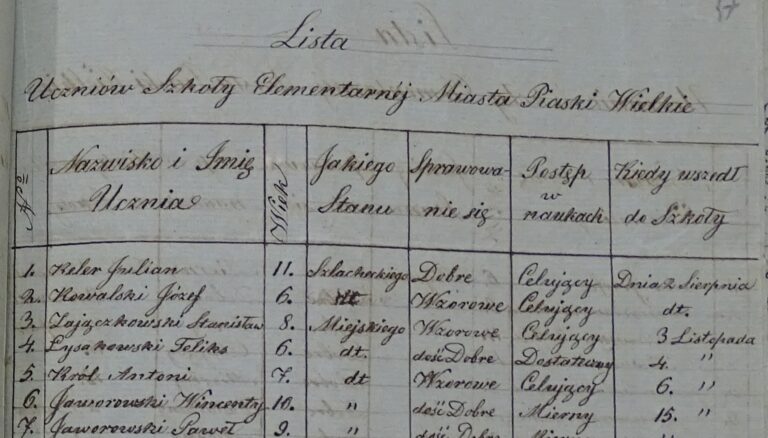 Lista
Uczniów Szkoły Elementarnéj Miasta Piaski Wielkie
No Nazwisko i Imię Ucznia Wiek Jakiego Stanu Sprawowanie się Postęp w naukach Kiedy wszedł do Szkoły
1. Keler Julian 11. Szlacheckiego Dobre Celujący Dnia 2 Sierpnia
2. Kowalski Józef 6. Wzorowe Celujący dt.
3. Zajączkowski Stanisław 8. Miejskiego Wzorowe Celujący 3 Listopada
4. Łysakowski Feliks 6. dt. dość Dobre Dostateczny 4. "
5. Król Antoni 7. dt Wzorowe Celujący 6. "
6. Jaworowski Wincenty 10. " dość Dobre Mierny 15. "
7. Jaworowski Paweł 9. " dość Dobre